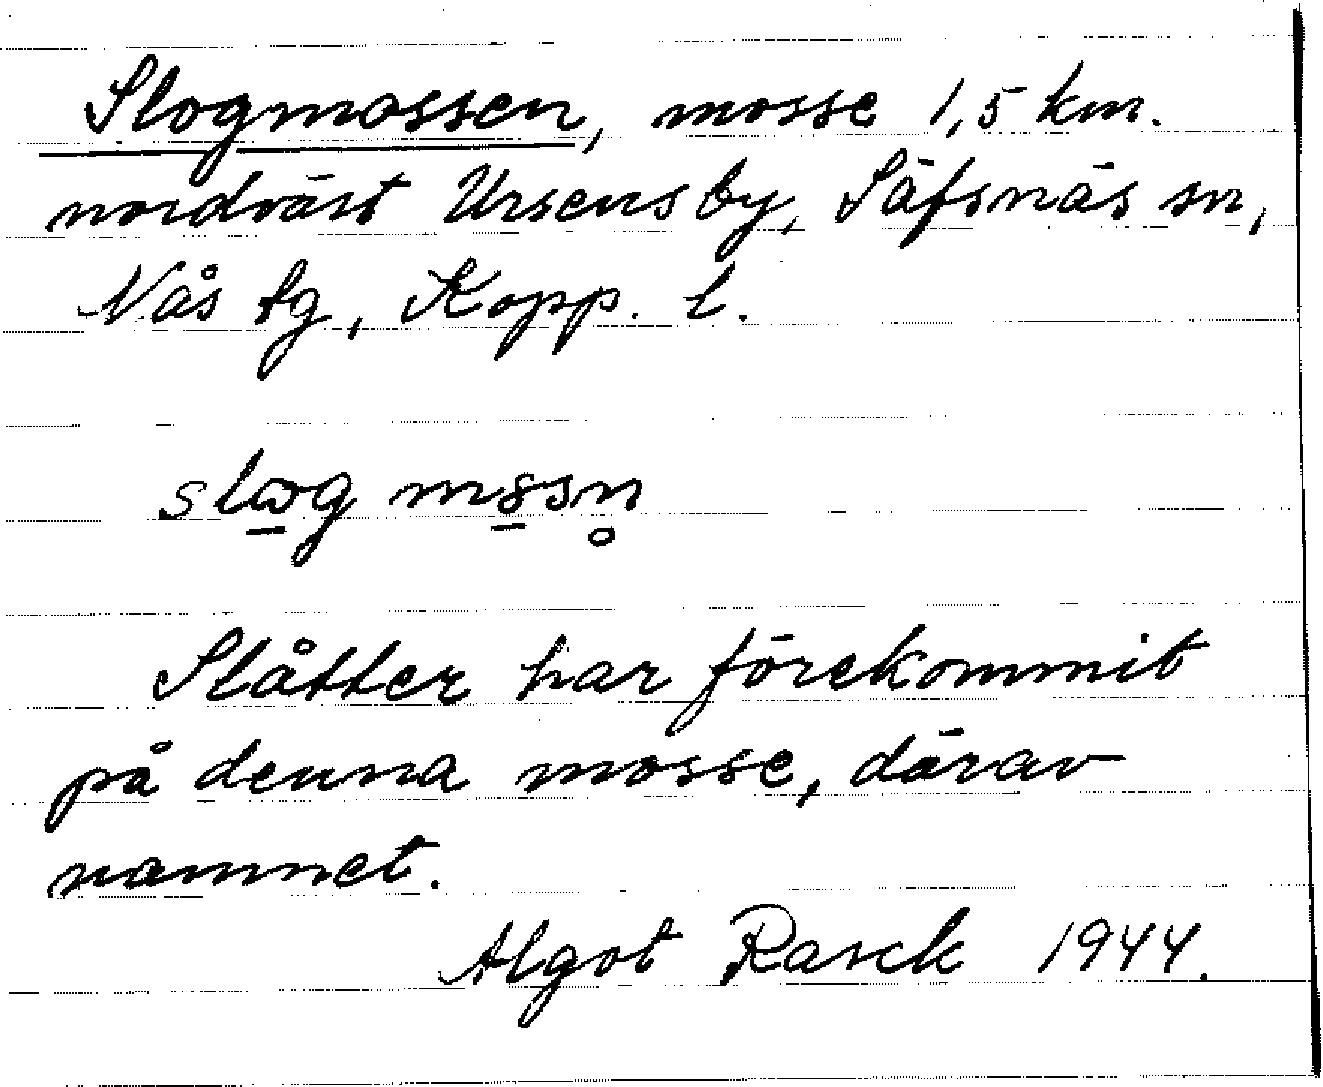 Slogmossen, mosse 1,5 km.
nordväst Ursensby, Säfsnäs sn,
Nås tg, Kopp. l.
slωg m8sn̥
Slåtter har förekommit
på denna mosse, därav
namnet.
Algot Rasck 1944.